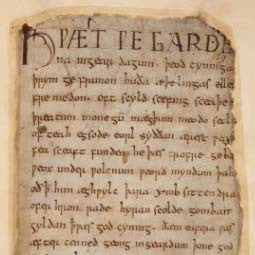 HǷÆT ǷE GARDE
na ingear dagum. þeod cyninga
þrym ge frunon huða æþelingas elle
fre medon. oft scyld scefing sceaþe
þreatum monegū mægþum meodo setl
of teah egsode eorl syððan ærest ƿear
fea sceaft funden he þæs frofre geba
ƿeox under ƿolcnum ƿeorð myndum þah
oð þ him æghƿylc þara ymb sittendra
ofer hron rade hyran scolde gomban
gyldan þ ƿæs god cyning. ðæm eafera ƿæs
æfter cenned geong ingeardum þone god